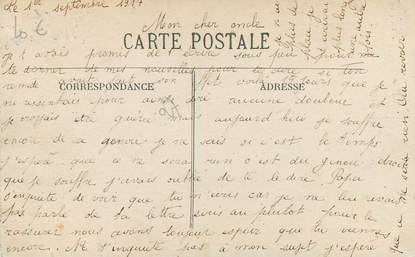 Le 1er septembre 1917
10 €
Mon cher oncle
CARTE POSTALE
je t'avais promis de t'écrire sous peu pour
te donner de mes nouvelles pour te dire si ton
remède avait fait son effet vois d'ailleurs que je
CORRESPONDANCE
ADRESSE
ne ressentais pour ainsi dire aucune douleur et
je croyais être guérie mais aujourd hui je souffre
encore de ce genou je ne sais si c'est le temps
j'espère que ce ne sera rien c'est du genou droit
que je souffre j'avais oublié de te le dire Papa
s'inquiète de voir que tu n'écris car je ne lui avais
pas parlé de ta lettre écris au plutot pour le
rassurer nous avons toujours espoir que tu viennes
encore. Ne t'inquiète pas à mon sujet j'espère
que ce ne sera rien au revoir